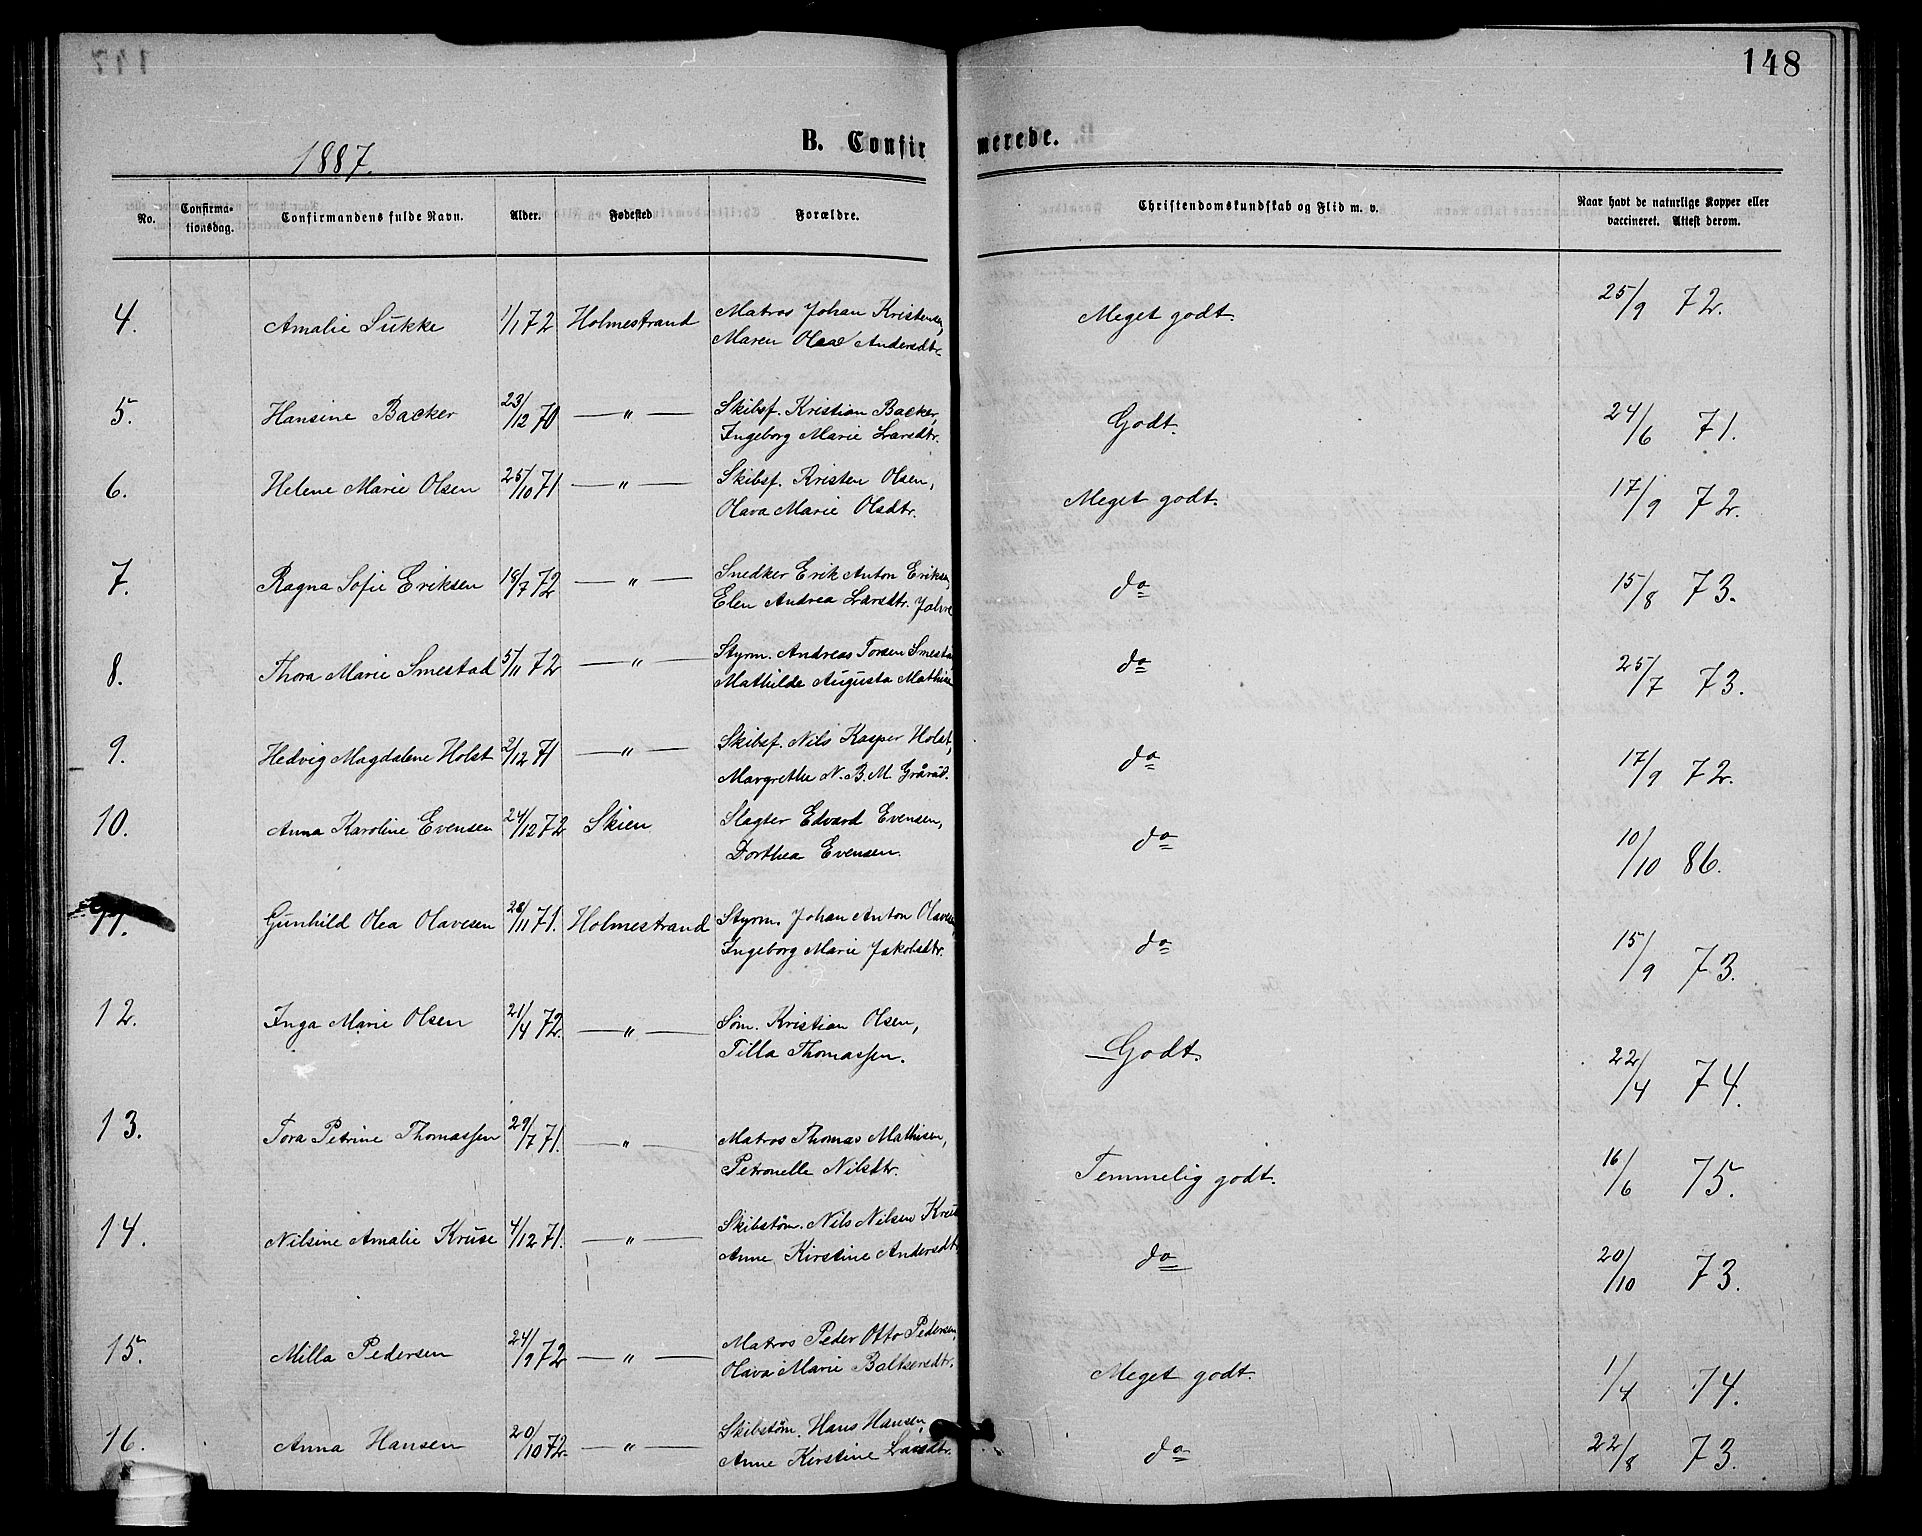 148
1887.
B. Confirmerede.
No. Confirmationsdag. Confirmandens fulde Navn. Alder. Fødested Forældre. Christendomskundskab og Flid m. v. Naar havt de naturlige Kopper eller vaccineret. Attest derom.
4. Amalie Sukke 1/1 72 Holmestrand Matros Johan Kristensen, Meget godt. 25/9 72.
Maren Andersdtr.
5. Hansine Backer 23/12 70 — " — Skibsf. Kristian Backer, Godt. 24/6 71.
Ingeborg Marie Larsdtr.
6. Helene Marie Olsen 25/10 71 — " — Skibsf. Kristen Olsen, Meget godt. 17/9 72.
Olava Marie Olsdtr.
7. Ragna Sofie Eriksen 18/7 72 — " — Snedker Erik Anton Eriksen, do 15/8 73.
Elen Andrea Larsdtr.
8. Thora Marie Smestad 5/11 72 — " — Styrm. Andreas Torsen Smestad do 25/7 73.
Mathilde Augusta
9. Hedvig Magdalene Holst 2/12 71 — " — Skibsf. Nils Kasper Holst, do 17/9 72.
Margrethe N. B. M.
10. Anna Karoline Evensen 24/12 72 Skien Slagter Edvard Evensen, do 10/10 86.
Dorthea Evensen.
11. Gunhild Olea Olavesen 28/11 71. Holmestrand Styrm. Johan Anton Olavesen, do 15/9 73.
Ingeborg Marie Jakobsdtr.
12. Inga Marie Olsen 21/4 72. — " — Søm. Kristian Olsen, Godt. 22/4 74.
Tilla Thomassen.
13. Tora Petrine Thomassen 29/7 71. — " — Matros Thomas Mathisen, Temmelig godt. 16/6 75.
Petronelle Nilsdtr.
14. Nilsine Amalie Kruse 4/12 71. — " — Skibstøm. Nils Nilsen Kruse do 20/10 73.
Anne Kirstine Andersdtr
15. Milla Pedersen 24/9 72 — " — Matros Peder Otto Pedersen, Meget godt. 1/4 74.
Olava Marie Baltsersdtr.
16. Anna Hansen 20/10 72. — " — Skibstøm. Hans Hansen, do 22/8 73.
Anne Kirstine Larsdtr.